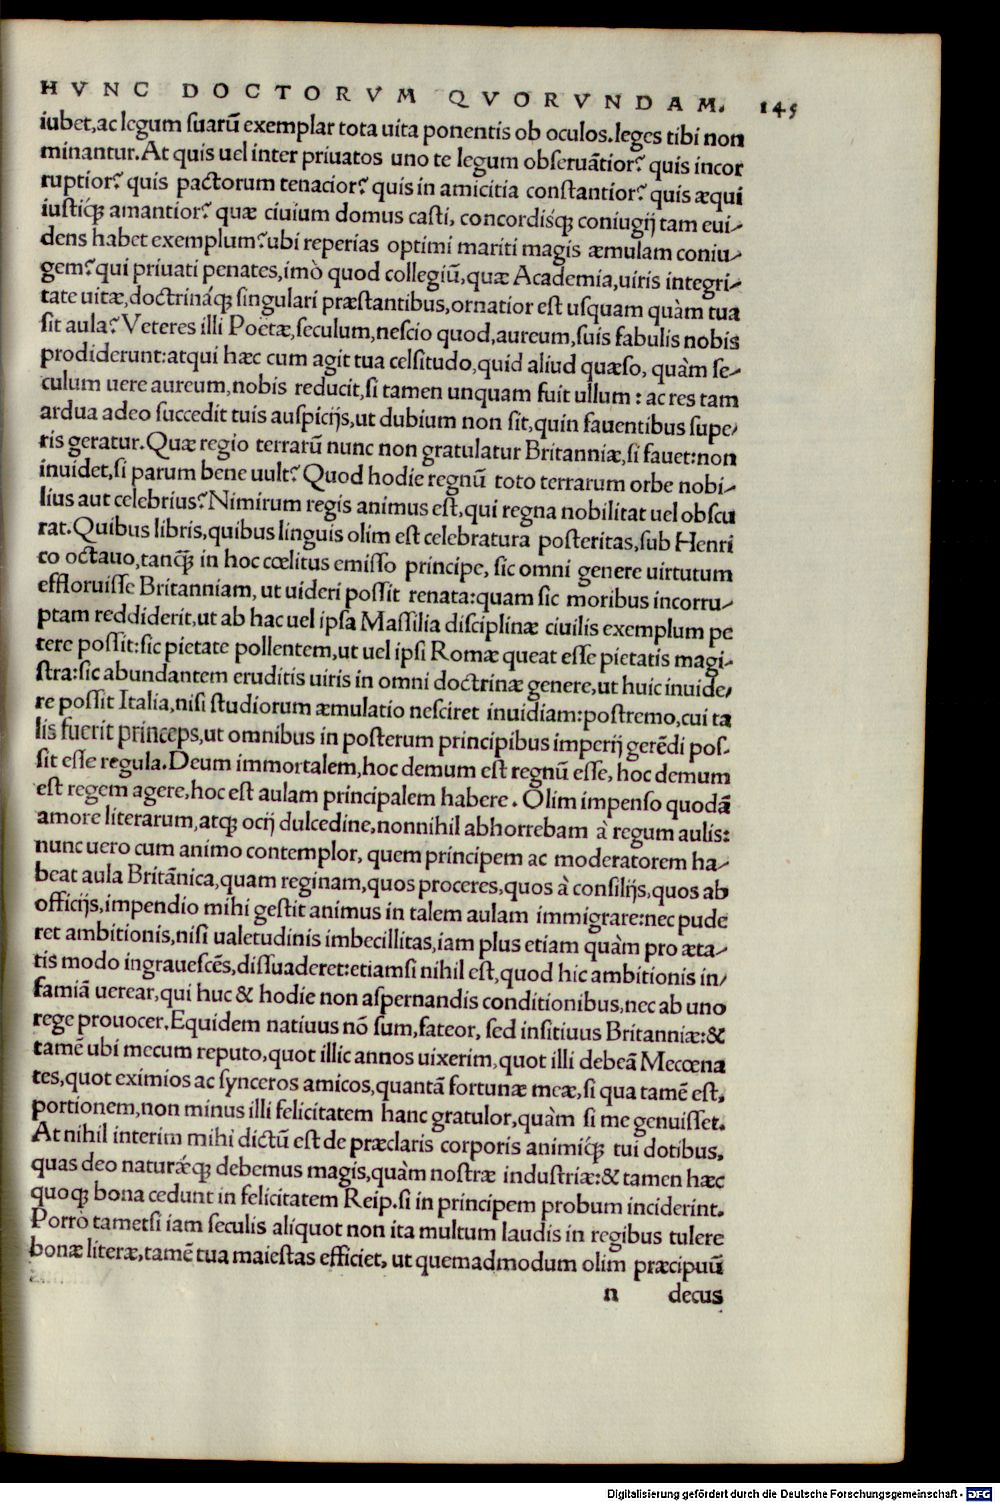 HVNC DOCTORVM QVORVNDAM. 145
iubet,ac legum suarū exemplar tota uita ponentis ob oculos.leges tibi non
minantur.At quis uel inter priuatos uno te legum obseruātior? quis incor
ruptior? quis pactorum tenacior? quis in amicitia constantior? quis æqui
iustiq́; amantior? quæ ciuium domus casti, concordisq́; coniugij tam eui-
dens habet exemplum? ubi reperias optimi mariti magis æmulam coniu-
gem? qui priuati penates,imò quod collegiū,quæ Academia,uiris integri-
tate uitæ,doctrináq; singulari præstantibus,ornatior est usquam quàm tua
sit aula? Veteres illi Poëtæ,seculum,nescio quod,aureum,suis fabulis nobis
prodiderunt:atqui hæc cum agit tua celsitudo,quid aliud quæso, quàm se-
culum uere aureum,nobis reducit,si tamen unquam fuit ullum : ac res tam
ardua adeo succedit tuis auspicijs,ut dubium non sit,quin fauentibus supe-
ris geratur.Quæ regio terrarū nunc non gratulatur Britanniæ,si fauet:non
inuidet,si parum bene uult? Quod hodie regnū toto terrarum orbe nobi-
lius aut celebrius? Nimirum regis animus est,qui regna nobilitat uel obscu
rat.Quibus libris,quibus linguis olim est celebratura posteritas,sub Henri
co octauo,tanq̃; in hoc cœlitus emisso principe, sic omni genere uirtutum
effloruisse Britanniam, ut uideri possit renata:quam sic moribus incorru-
ptam reddiderit,ut ab hac uel ipsa Massilia disciplinæ ciuilis exemplum pe
tere possit:sic pietate pollentem,ut uel ipsi Romæ queat esse pietatis magi-
stra:sic abundantem eruditis uiris in omni doctrinæ genere,ut huic inuide-
re possit Italia,nisi studiorum æmulatio nesciret inuidiam:postremo,cui ta
lis fuerit princeps,ut omnibus in posterum principibus imperij gerēdi pos-
sit esse regula.Deum immortalem,hoc demum est regnū esse, hoc demum
est regem agere,hoc est aulam principalem habere . Olim impenso quodā
amore literarum,atq; ocij dulcedine,nonnihil abhorrebam à regum aulis:
nunc uero cum animo contemplor, quem principem ac moderatorem ha-
beat aula Britānica,quam reginam,quos proceres,quos à consilijs,quos ab
officijs,impendio mihi gestit animus in talem aulam immigrare:nec pude
ret ambitionis,nisi ualetudinis imbecillitas,iam plus etiam quàm pro æta-
tis modo ingrauescēs,dissuaderet:etiamsi nihil est,quod hic ambitionis in-
famiā uerear,qui huc & hodie non aspernandis conditionibus,nec ab uno
rege prouocer.Equidem natiuus nō sum,fateor, sed insitiuus Britanniæ:&
tamē ubi mecum reputo,quot illic annos uixerim,quot illi debeā Mecœna
tes,quot eximios ac synceros amicos,quantā fortunæ meæ,si qua tamē est,
portionem,non minus illi felicitatem hanc gratulor,quàm si me genuisset.
At nihil interim mihi dictū est de præclaris corporis animiq́; tui dotibus,
quas deo naturǽq; debemus magis,quàm nostræ industriæ:& tamen hæc
quoq; bona cedunt in felicitatem Reip.si in principem probum inciderint.
Porrò tametsi iam seculis aliquot non ita multum laudis in regibus tulere
bonæ literæ,tamē tua maiestas efficiet, ut quemadmodum olim præcipuū
n decus
Digitalisierung gefördert durch die Deutsche Forschungsgemeinschaft - DFG